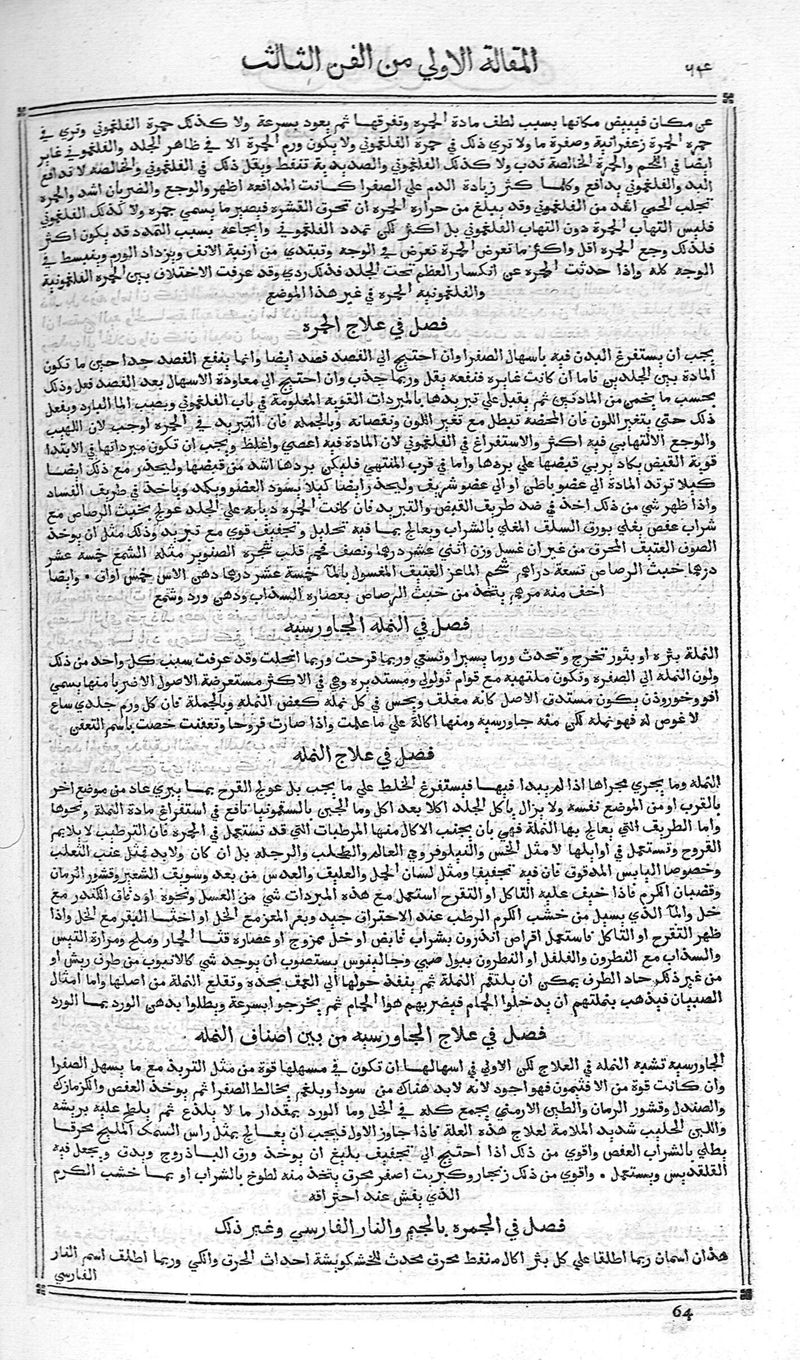 المقالة الاولي من الفن الثالث
عن مكان فيبيض مكانها بسبب لطف مادة الحمرة وتفرقها ثم يعود بسرعة ولا كذلك حمرة الفلغموني وتري في
حمرة الحمرة زعفرانية وصفرة ما ولا تري ذلك في حمرة الفلغموني ولا يكون ورم الحمرة الا في ظاهر الجلد والفلغموني غاير
ايضا في اللحم والحمرة الخالصة تدب ولا كذلك الفلغموني والصديدية تنفط ويقل ذلك في الفلغموني والخالصة لا تدافع
اليد والفلغموني يدافع وكلما كثر زيادة الدم علي الصفرا كانت المدافعة اظهر والوجع والضربان اشد والحمرة
تجلب الحمي اشد من الفلغموني وقد يبلغ من حرارة الحمرة ان تحرق القشره فيصير ما يسمي جمره ولا كذلك الفلغموني
فليس التهاب الحمرة دون التهاب الفلغموني بل اكثر لكن تمدد الفلغموني وايجاعه بسبب التمدد قد يكون اكثر
فلذلك وجع الحمرة اقل واكثر ما تعرض الحمرة تعرض في الوجه وتبتدي من ارنبة الانف ويزداد الورم وينبسط في
الوجه كله واذا حدثت الحمرة عن انكسار العظم تحت الجلد فذلك ردي وقد عرفت الاختلاف بين الحمرة الفلغمونية
والفلغمونية الحمرة في غير هذا الموضع
فصل في علاج الحمره
يجب ان يستفرغ البدن فيه باسهال الصفرا وان احتيج الي الفصد فصد ايضا وانما ينفع الفصد جدا حين ما تكون
المادة بين الجلدين فاما ان كانت غايره فنفعه يقل وربما جذب وان احتيج الي معاودة الاسهال بعد الفصد فعل وذلك
بحسب ما يخمن من المادتين ثم يقبل علي تبريدها بالمبردات القوية المعلومة في باب الفلغموني وبصب الما البارد ويفعل
ذلك حتي يتغير اللون فان المحضة تبطل مع تغير اللون ونقصانه وبالجمله فان التبريد في الحمرة اوجب لان اللهيب
والوجع الالتهابي فيه اكثر والاستفراغ في الفلغموني لان المادة فيه اعصي واغلظ ويجب ان تكون مبرداتها في الابتدا
قوية القبض يكاد يربي قبضها علي بردها واما في قرب المنتهي فليكن بردها اشد من قبضها وليحذر مع ذلك ايضا
كيلا ترتد المادة الي عضو باطن او الي عضو شريف وليحذر ايضا كيلا يسود العضو ويكمد وياخذ في طريف الفساد
واذا ظهر شي من ذلك اخذ في ضد طريف القبض والتبريد فان كانت الحمرة دبابة علي الجلد عولج بخبث الرصاص مع
شراب عفص يغلي بورق السلف المغلي بالشراب ويعالج بما فيه تحليل وتجفيف قوي مع تبريد وذلك مثل ان يوخذ
الصوف العتيف المحرق من غير ان غسل وزن اثني عشر درهما ونصف فحم قلب شجرة الصنوبر مثله الشمع خمسة عشر
درهما خبث الرصاص تسعة دراهم شحم الماعز العتيف المغسول بالمآ خمسة عشر درهما دهن الاس خمس اواق ۰ وايضا
اخف منه مرهم يتخذ من خبث الرصاص بعصاره السذاب ودهن ورد وشمع
فصل في النمله الجاورسيه
النملة بثرة او بثور تخرج وتحدث ورما يسيرا وتسعي وربما قرحت وربما انحلت وقد عرفت سبب كل واحد من ذلك
ولون النملة الي الصفرة وتكون ملتهبه مع قوام ثولولي ومستديره وهي في الاكثر مستعرضة الاصول الا ضربا منها يسمي
افروخوردوذن يكون مستدق الاصل كانه معلف ويحس في كل نملة كعض النملة وبالجملة فان كل ورم جلدي ساع
لا غوص له فهو نملة لكن منه جاورسيه ومنها اكالة علي ما علمت واذا صارت قروحا وتعفنت خصت باسم التعفن
فصل في علاج النمله
النمله وما يجري مجراها اذا لم يبدا فيها فيستفرغ الخلط علي ما يجب بل عولج القرح بما يبري عاد من موضع اخر
بالقرب او من الموضع نفسه ولا يزال ياكل الجلد اكلا بعد اكل وما الجبن بالسقمونيا نافع في استفراغ مادة النملة ونحوها
واما الطريف التي يعالج بها النملة فهي بان يجتنب الاكال منها المرطبات التي قد تستعمل في الحمرة فان الترطيب لا يلايم
القروح وتستعمل في اوايلها لا مثل الخس والنيلوفر وحي العالم والطحلب والرجله بل ان كان ولابد فمثل عنب الثعلب
وخصوصا اليابس المدقوق فان فيه تجفيفا ومثل لسان الحمل والعليف والعدس من بعد وسويف الشعير وقشور الرمان
وقضبان الكرم فاذا خيف عليه التاكل او التقرح استعمل مع هذه المبردات شي من العسل ونحوه او دقاق الكندر مع
خل والمآ الذي يسيل من خشب الكرم الرطب عند الاحتراق جيد وبعر المعز مع الخل او اخثا البقر مع الخل واذا
ظهر التقرح او التاكل فاستعمل اقراص اندرون بشراب قابض او خل ممزوج او عصاره قثا الحمار وملح ومرارة التيس
والسذاب مع النطرون والفلفل او النطرون ببول صبي وجالينوس يستصوب ان يوخذ شي كالانبوب من طرف ريش او
من غير ذلك حاد الطرف يمكن ان يلتقم النملة ثم ينفذ حولها الي العمق بحده وتقلع النملة من اصلها واما امثال
الصبيان فيذهب بنملتهم ان يدخلوا الحمام فيضربهم هوا الحمام ثم يخرجوا بسرعة ويطلوا بدهن الورد بما الورد
فصل في علاج الجاورسيه من بين اصناف النمله
الجاورسية تشبه النملة في العلاج لكن الاولي في اسهالها ان تكون في مسهلها قوة من مثل التربد مع ما يسهل الصفرا
وان كانت قوة من الافتيمون فهو اجود لانه لابد هناك من سودا وبلغم يخالط الصفرا ثم يوخذ العفص والكزمازك
والصندل وقشور الرمان والطين الارمني يجمع كله في الخل وما الورد بمقدار ما لا يلذع ثم يلطخ عليه بريشه
واللبن الحليب شديد الملامة لعلاج هذه العلة فاذا جاوز الاول فيجب ان يعالج بمثل راس السمك المليح محرقا
يطلي بالشراب العفص واقوي من ذلك اذا احتيج الي تجفيف بليغ ان يوخذ ورق الباذروج ويدق ويجعل فيه
القلقديس ويستعمل ۰ واقوي من ذلك زنجار وكبريت اصفر محرق يتخذ منه لطوخ بالشراب او بما خشب الكرم
الذي يفش عند احتراقه
فصل في الجمره بالجيم والنار الفارسي وغير ذلك
هذان اسمان ربما اطلقا علي كل بثر اكال منفط محرق محدث للخشكريشة احداث الحرق والكي وربما اطلق اسم النار
الفارسي
64